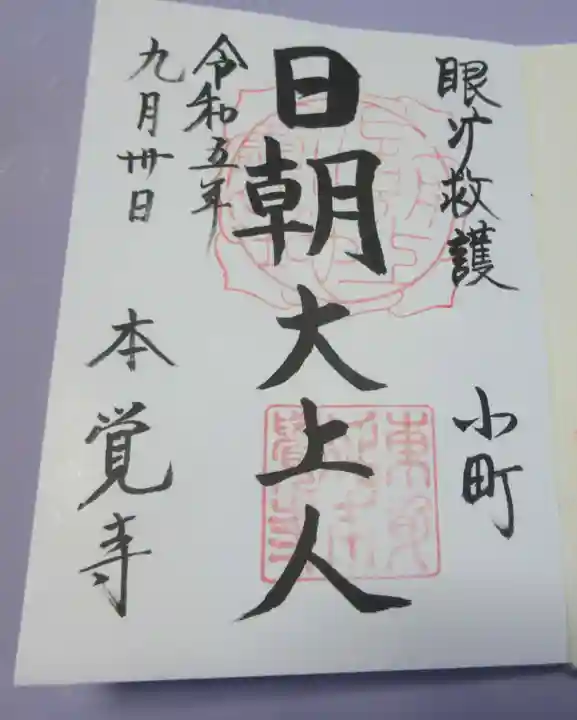 眼疒救護
小町
日朝大上人
令和五年
九月卅日
本覚寺